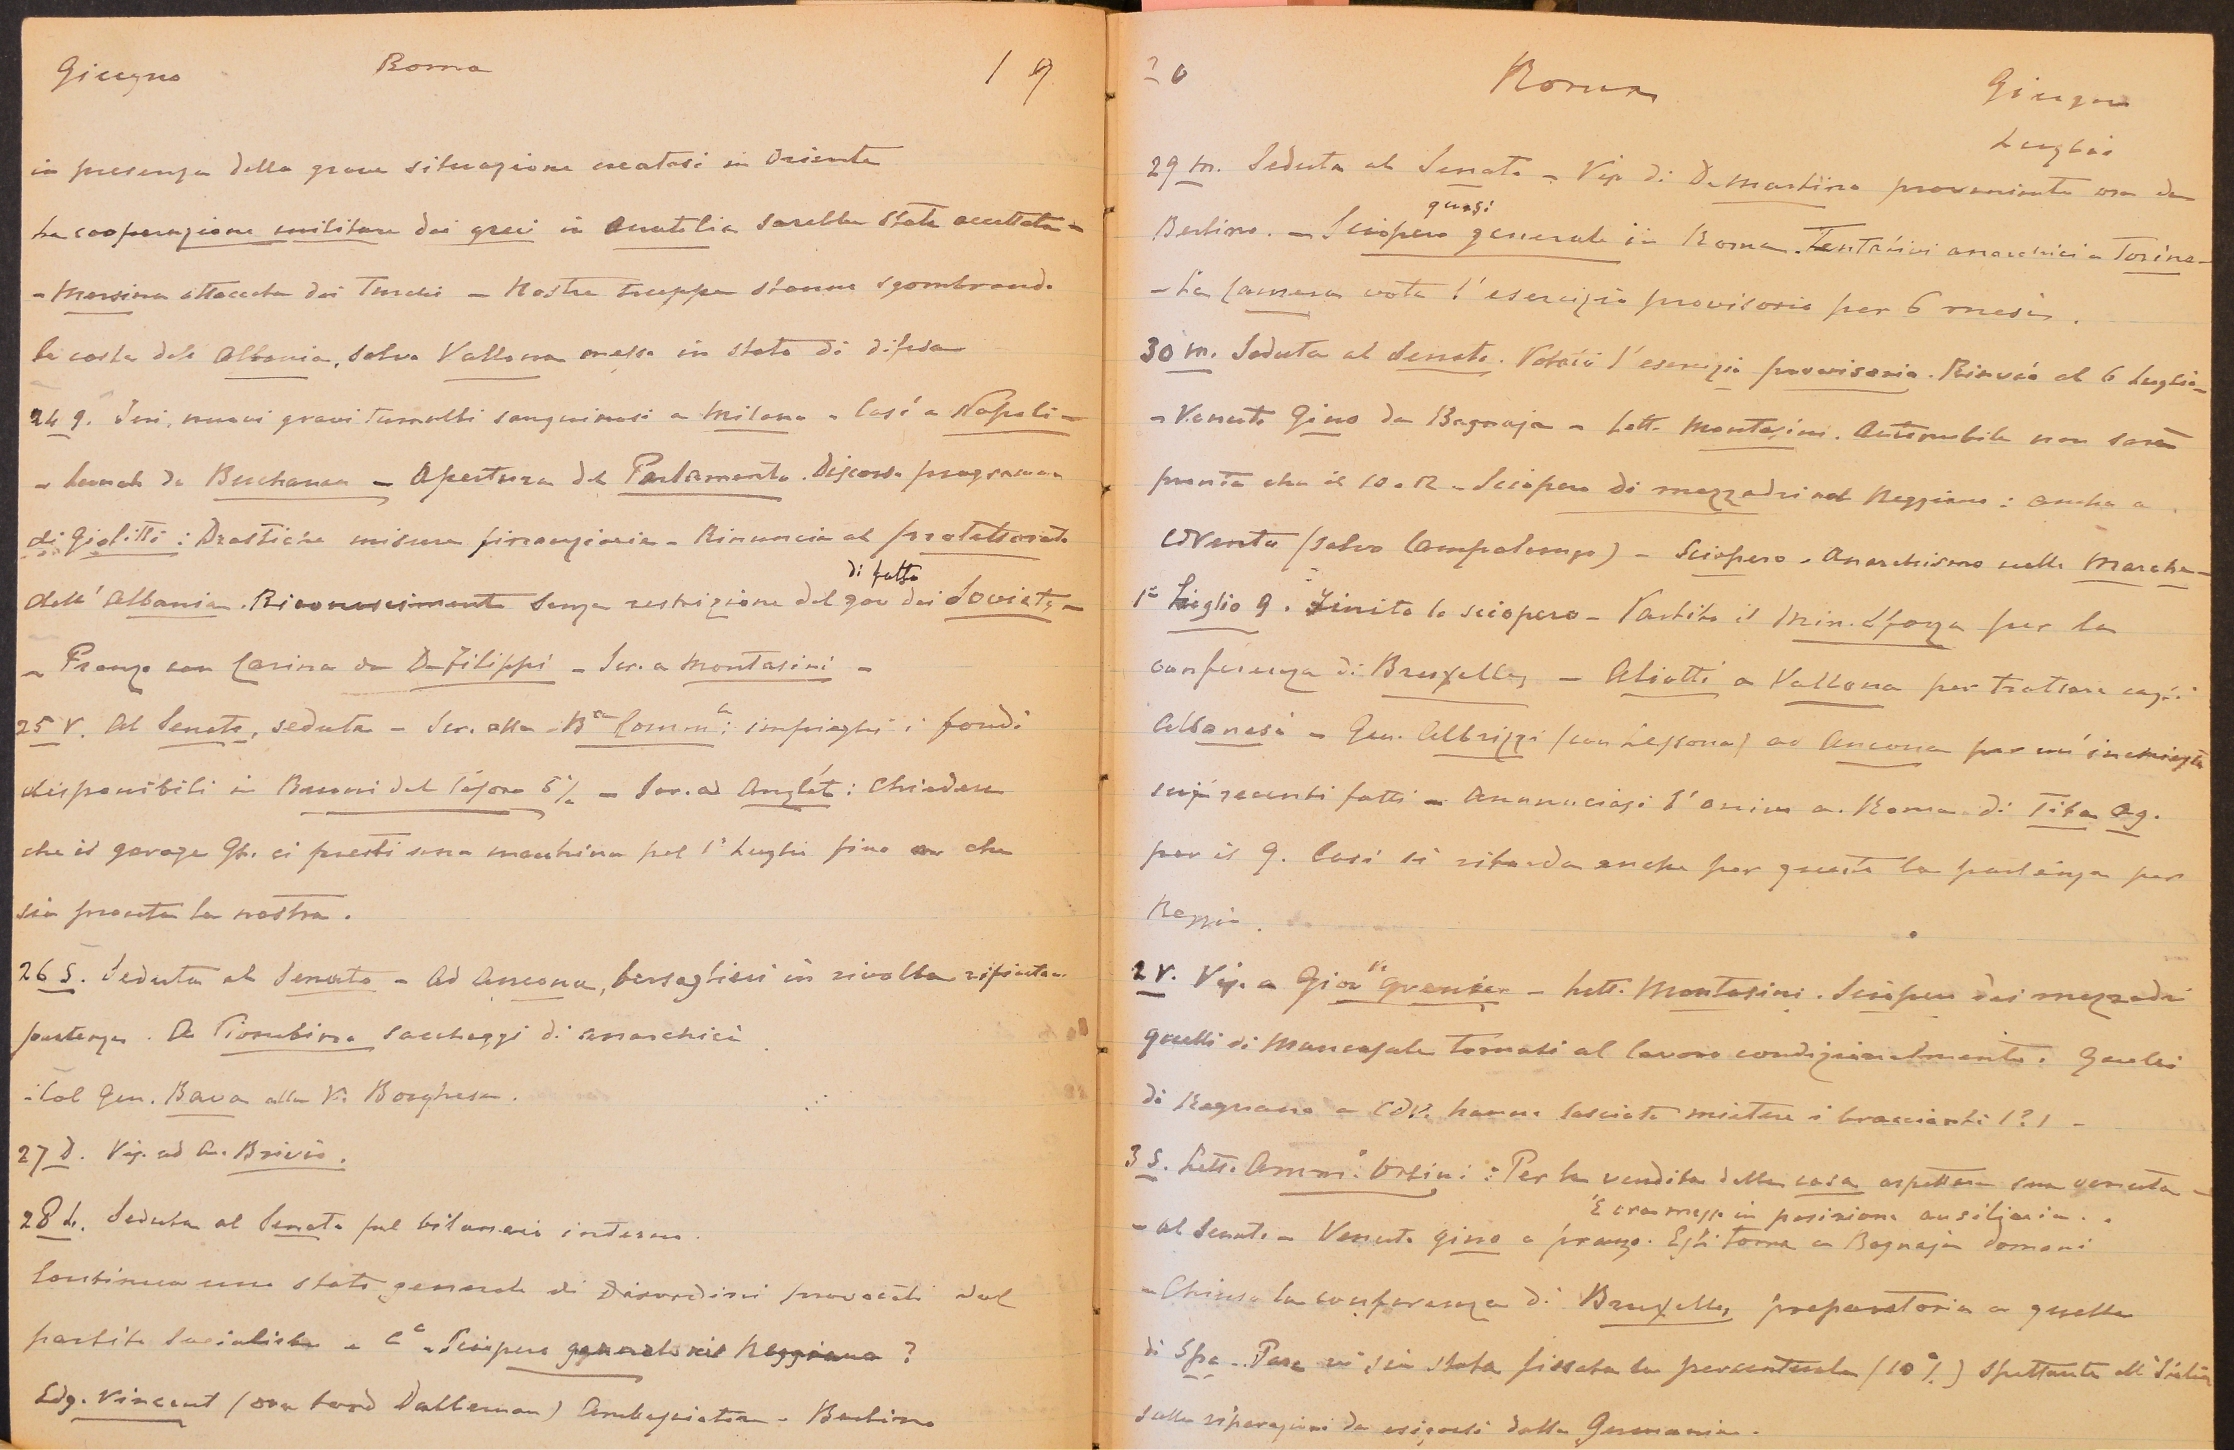 Giugno Roma 19
in presenza della grave situazione creatasi in Oriente
La cooperazione militare dei greci in Anatolia sarebbe stata accettata -
- Mersina attaccata dai Turchi - Nostre truppe stanno sgombrando
la costa dell' Albania, salvo Vallona messa in stato di difesa
24 g. Ieri, nuovi gravi tumulti sanguinosi a Milano - Così a Napoli -
- Lunch da Buchanan - Apertura del Parlamento. Discorso programma
di Giolitti: Drastiche misure finanziarie - Rinuncia al protettorato
dell' Albania. Riconoscimento senza restrizione del gov di fatto dei Soviets -
- Pranzo con Carina da De Filippi - Scr. a Montasini -
25 V. Al Senato, seduta - Scr. alla Bca Comm.: impieghi i fondi
disponibili in Buoni del Tesoro 5% - Scr. ad Anglet: Chiedere
che il garage ci presti una macchina pel 1° Luglio fino a che
sia pronta la nostra.
26 S. Seduta al Senato - Ad Ancona, bersaglieri in rivolta rifiutan
partenza. A Piombino saccheggi di anarchici
- Col Gen. Bava alla V. Borghese.
27 D. Vis. ad A. Brivio.
28 L. Seduta al Senato sul bilancio interno.
Continua uno stato generale di disordini provocati dal
partito socialista e Ca - Sciopero generale nel Reggiano?
Edg. Vincent (ora Lord Dabernon) Ambasciatore a Berlino
20 Roma Giugno
Luglio
29 M. Seduta al Senato - Vis. di De Martino proveniente ora da
Berlino. - Sciopero quasi generale in Roma. Tentativi anarchici a Torino -
- La Camera vota l'esercizio provvisorio per 6 mesi.
30 M. Seduta al Senato. Votasi l'esercizio provvisorio. Rinvio al 6 Luglio -
- Venuto Gino da Bagnaja - Lett. Montasini. Automobile non sarà
pronta che il 10 o 12 - Sciopero di mezzadri nel Reggiano: anche a
(salvo Campolungo) - Sciopero e Anarchismo nelle Marche -
1° Luglio g. Finito lo sciopero - Partito il Min. Sforza per la
conferenza di Bruxelles - Aliotti a Vallona per trattare cogli
Albanesi - Gen. Albrizzi (con Lessona) ad Ancona per un' inchiesta
sui recenti fatti - Annunciasi l'arrivo a Roma di Tita Ag.
per il 9. Così si ritarda anche per questo la partenza per
Reggio.
2 V. Vis. a Giov. Granier - Lett. Montasini. Sciopero dei mezzadri
quelli di Mancasale tornati al lavoro condizionalmente. Quelli
di Bagnano a CdV. hanno lasciato mietere i braccianti (?) -
3 S. Lett. Amm. Orsini: Per la vendita della casa aspettare sua venuta -
È ora messo in posizione ausiliaria.
- Al Senato - Venuto Gino a pranzo. Egli torna a Bagnaja domani
- Chiusa la conferenza di Bruxelles, preparatoria a quella
di Spa - Pare vi sia stata fissata la percentuale (10%) spettante all' Italia
sulle riparazioni da esigersi dalla Germania.